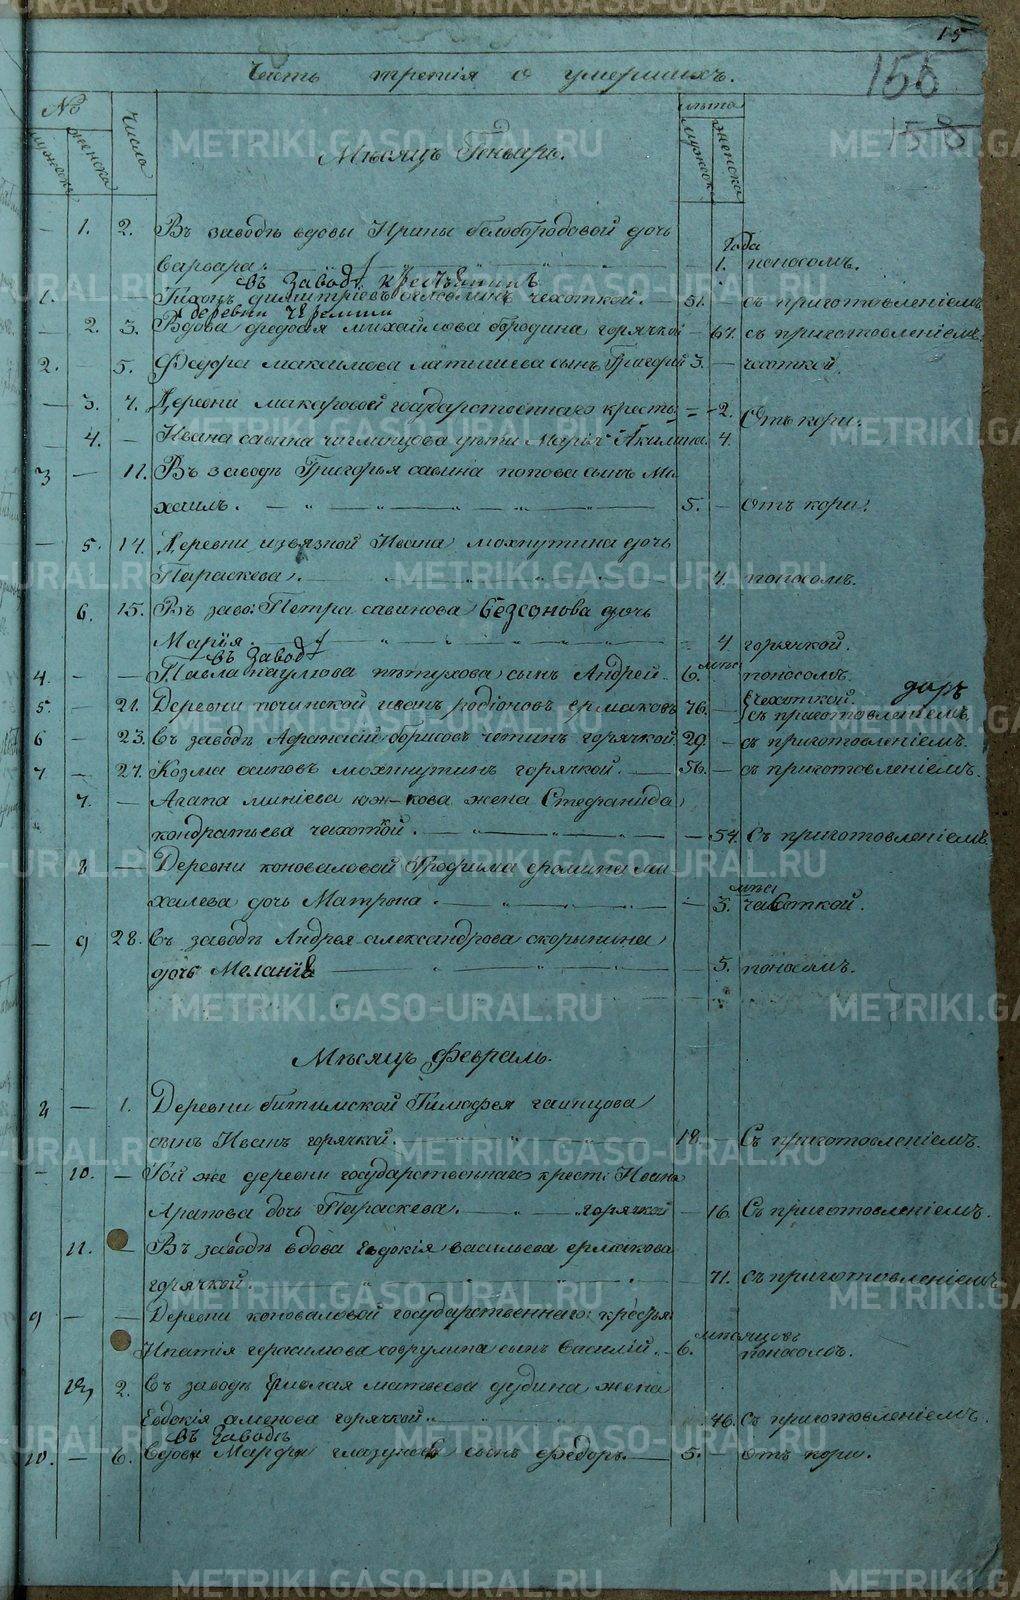 15
155
158
Часть третія о умершихъ.
№
мужеска
женска
Числа
Мѣсяцъ Генварь.
лѣта
мужеска
женска
1. 2. Въ заводѣ вдовы Ирины белобородовой дочь
Варвара. года 1. поносомъ.
въ Завод крестьянинъ
1. — Тихонъ димитріевъ чехоткой. — 51. съ приготовленіемъ
деревни Черемши
2. 3. Вдова федосія михайлова бородина горячкой — 67. съ приготовленіемъ.
2. — 5. Федора максимова латышева сынъ Григорій 3. — чесоткой.
3. 7. Деревни макаровой государственнаго кресть: — 2. Отъ кори.
4. — Ивана савина чиглинцова дѣти Марія Акилина. 4.
3 — 11. Въ заводѣ Григорья савина попова сынъ Ми
хаилъ. 5. — Отъ кори.
5. 14. Деревни извязной Ивана мохнутина дочь
Параскева. 4. поносомъ.
6. 15. Въ заво: Петра савинова Безсонова дочь
Марія. 4 горячкой.
въ Завод
4. — — Павла наумова пѣтухова сынъ Андрей. 6. мѣс: поносомъ.
5. — 21. Деревни починской иванъ родіоновъ ермаковъ 76. — чехоткой. даръ
съ приготовленіемъ,
6 — 23. Въ заводѣ Афанасій борисовъ четинъ горячкой. 29. — съ приготовленіемъ.
7 — 27. Козма осиповъ мохнутинъ горячкой. — 56. — съ приготовленіемъ.
7. — Агапа миніева южакова жена Стефанида
кондратьева чехоткой. — 54. Съ приготовленіемъ.
8 — Деревни коноваловой Трофима еромина ми
халева дочь Матрона. — 3. мѣс: чесоткой.
9 28. Въ заводѣ Андрея александрова скорынина
дочь Меланія — 5. поносомъ.
Мѣсяцъ Февраль.
8 — 1. Деревни битимской Тимофея галицова
сынъ Иванъ горячкой. 18. Съ приготовленіемъ.
10. — Той же деревни государственнаго крест: Ивана
Арапова дочь Параскева. горячкой — 16. Съ приготовленіемъ.
11. — Въ заводѣ вдова Евдокія васильева ермакова
горячкой. 71. съ приготовленіемъ
9 — — Деревни коноваловой государственнаго крестья:
Ипатія герасимова ховрулина сынъ Василій. 6. мѣсяцовъ поносомъ.
12, 2. Въ заводѣ Ермолая матвеева дудина жена
Евдокія горячкой. 46. Съ приготовленіемъ.
въ Заводѣ
10. — 6. Вдовы Марфы глазуновой сынъ Федоръ. — 5. — отъ кори.
METRIKI.GASO-URAL.RU